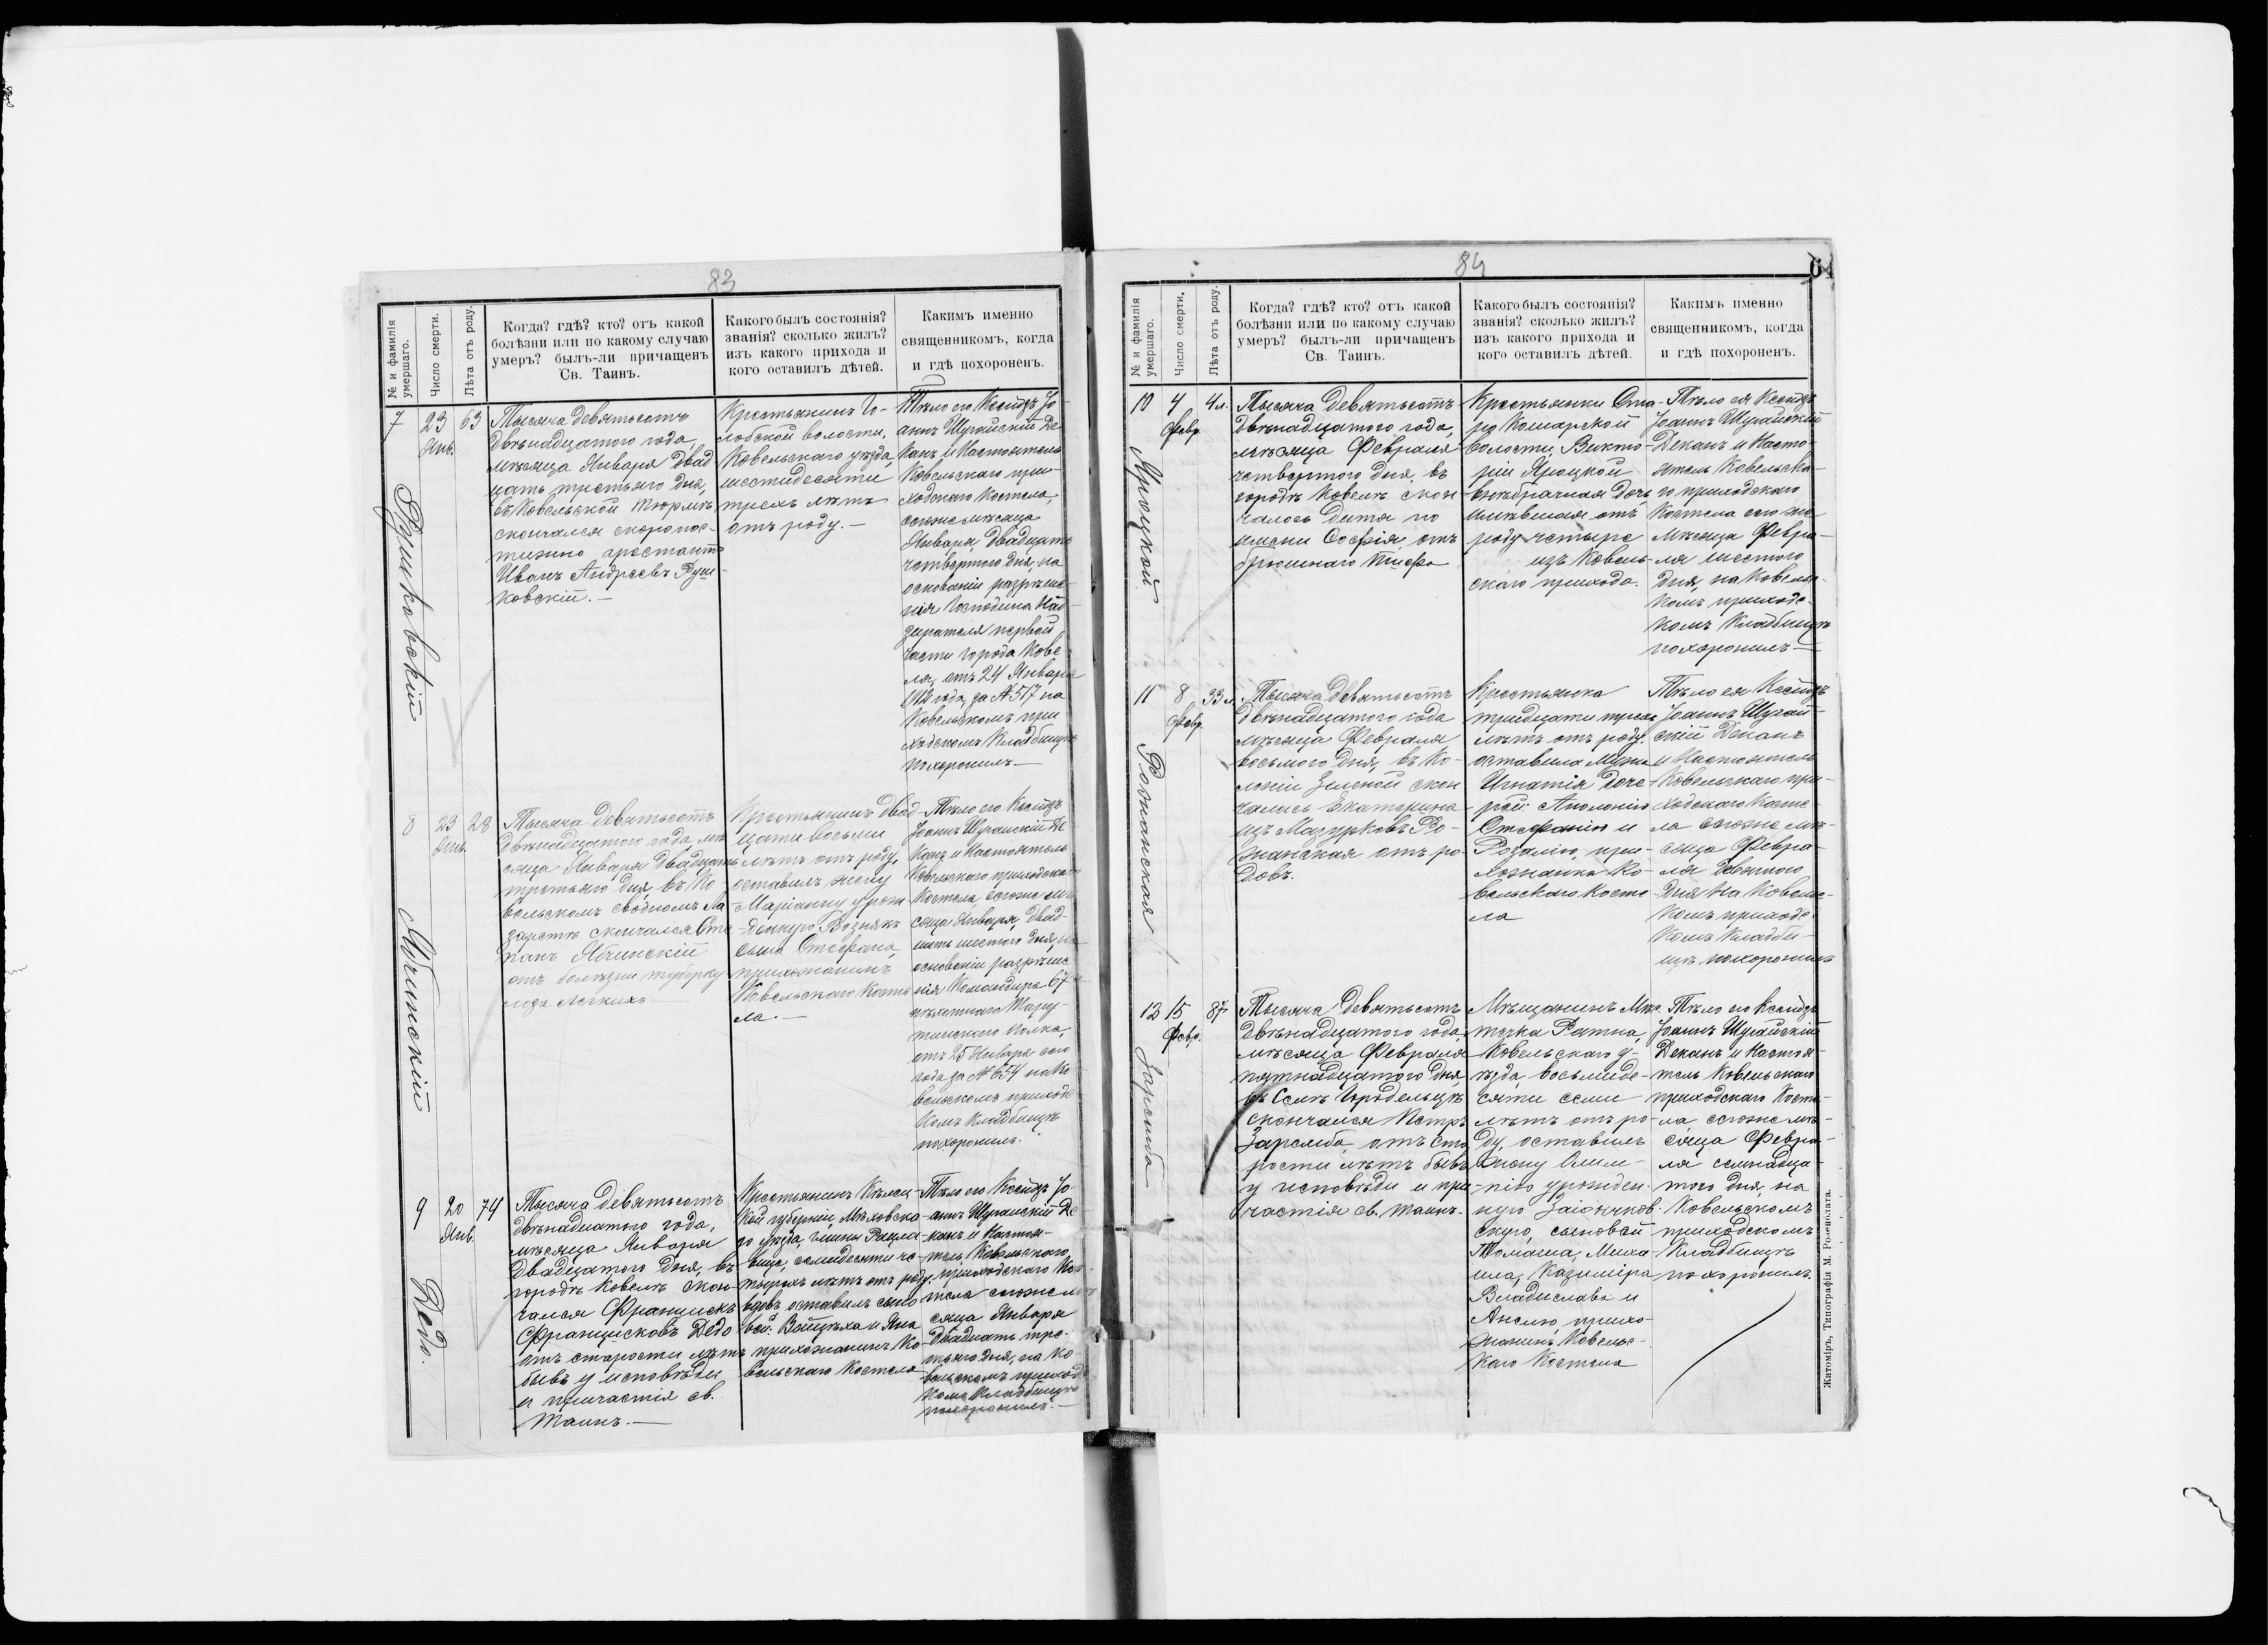 83
№ и фамилія
умершаго.
Число смерти.
Лѣта отъ роду.
Когда? гдѣ? кто? отъ какой
болѣзни или по какому случаю
умеръ? былъ-ли причащенъ
Св. Таинъ.
Какого былъ состоянія?
званія? сколько жилъ?
изъ какого прихода и
кого оставилъ дѣтей.
Какимъ именно
священникомъ, когда
и гдѣ похороненъ.
7
Рушковскій
23
Янв.
63
Тысяча девятьсотъ
двѣнадцатого года,
мѣсяца Января двад
цать третьяго дня,
въ Ковельской тюрьмѣ
скончался скоропос-
тижно арестантъ
Иванъ Андреевъ Руш-
ковскій.—
Крестьянинъ Го-
лобской волости,
Ковельскаго уѣзда,
шестидесяти
трехъ лѣтъ
отъ роду.—
Тѣло его Ксендзъ Іо-
аннъ Шугайскій Де-
канъ и Настоятель
Ковельскаго при-
ходскаго Костела,
сегоже мѣсяца
Января, двадцать
четвертого дня, на
основаніи разрѣше-
нія Господина Над-
зирателя первой
части города Кове-
ля, отъ 24 Января
1912 года, за № 517 на
Ковельскомъ при
ходскомъ Кладбищѣ
похоронилъ.—
8
Ябчинскій
23
Янв.
28
Тысяча девятьсотъ
двѣнадцатого года, мѣ
сяца Января двадцать
третьяго дня, въ Ко
вельскомъ сводномъ ла
заретѣ скончался Сте
панъ Ябчинскій
отъ болѣзни туберку
леза легкихъ
Крестьянинъ двад-
цати восьми
лѣтъ отъ роду,
оставилъ жену
Маріанну урож
денную Вознякъ
сына Стефана,
прихожанинъ
Ковельскаго Косте
ла.—
Тѣло его Ксендзъ
Іоаннъ Шугайскій Де-
канъ и Настоятель
Ковельскаго приходскаго
Костела, сегоже мѣ
сяца Января, двад-
цать шестого дня, на
основаніи разрѣше
нія Командира 67
пѣхотнаго Тару-
тинскаго Полка,
отъ 25 Января сего
года за № 654 на Ко
вельскомъ приходс
комъ Кладбищѣ
похоронилъ.
9
Дедо.
20
Янв.
74
Тысяча девятьсотъ
двѣнадцатого года,
мѣсяца Января
двадцатого дня, въ
городѣ Ковелѣ скон-
чался Францискъ
Францисковъ Дедо
отъ старости лѣтъ
бывъ у исповѣди
и причастія св.
Таинъ.—
Крестьянинъ Кѣлец-
кой губерніи, Мѣховска-
го уѣзда, гмины Рацла-
вице, семидесяти че-
тырехъ лѣтъ отъ роду.
вдовъ, оставилъ сыно
вей: Войцѣха и Яна
прихожанинъ Ко-
вельскаго Костела
Тѣло его Ксендзъ Іо-
аннъ Шугайскій Де
канъ и Настоя-
тель Ковельскаго
приходскаго Ко-
стела сегоже мѣ
сяца Января
двадцать тре-
тьяго дня, на Ко-
вельскомъ приход
комъ Кладбищѣ
похоронилъ.—
84
№ и фамилія
умершаго.
Число смерти.
Лѣта отъ роду.
Когда? гдѣ? кто? отъ какой
болѣзни или по какому случаю
умеръ? былъ-ли причащенъ
Св. Таинъ.
Какого былъ состоянія?
званія? сколько жилъ?
изъ какого прихода и
кого оставилъ дѣтей.
Какимъ именно
священникомъ, когда
и гдѣ похороненъ.
10
Яроцкой
4
Февр.
4 л.
Тысяча девятьсотъ
двѣнадцатого года,
мѣсяца Февраля
четвертого дня, въ
городѣ Ковелѣ скон-
чалось дитя по
имени Софія, отъ
брюшнаго тифа
Крестьянки Ста-
ро Кошарской
волости, Викто-
ріи Яроцкой
внѣбрачная дочь
имѣвшая отъ
роду четыре
изъ Ковель-
скаго прихода.
Тѣло ея Ксендзъ
Іоаннъ Шугайскій
Деканъ и Насто-
ятель Ковельска-
го приходскаго
Костела сего же
мѣсяца Февра-
ля шестого
дня, на Ковельс-
комъ приходс-
комъ Кладбищѣ
похоронилъ—
11
Рожанская
8
Февр.
33 л.
Тысяча девятьсотъ
двѣнадцатого года
мѣсяца Февраля
восьмого дня, въ Ко-
лоніи Зеленой скон
чалась Екатерина
изъ Мазурковъ Ро-
жанская отъ ро-
довъ.
Крестьянка
тридцати трехъ
лѣтъ отъ роду.
оставила мужа
Игнатія доче-
рей: Аполонію
Стефанію и
Розалію, при-
хожанка Ко-
вельскаго косте-
ла
Тѣло ея Ксендзъ
Іоаннъ Шугай-
скій Деканъ
и Настоятель
Ковельскаго при-
ходскаго Косте-
ла сегоже мѣ-
сяца Февра-
ля девятого
дня на Ковельс-
комъ приходс-
комъ кладби-
щѣ похоронилъ
12
Заремба
15
Февр.
87
Тысяча девятьсотъ
двѣнадцатого года,
мѣсяца Февраля
пятнадцатого дня,
въ Селѣ Городельцѣ
скончался Петръ
Заремба, отъ ста
рости лѣтъ бывъ
у исповѣди и при-
частія св. таинъ.
Мѣщанинъ Мѣс-
течка Ратна,
Ковельскаго у-
ѣзда, восьмиде-
сяти семи
лѣтъ отъ ро-
ду, оставилъ
жену Олим-
пію урожден-
ную Заіончков-
скую, сыновей
Томаша, Миха
ила, Казиміра
Владислава и
Анелю, прихо-
жанинъ Ковельс-
каго Костела
Тѣло его Ксендзъ
Іоаннъ Шугайскій
Деканъ и Настоя-
тель Ковельскаго
приходскаго Косте-
ла сегоже мѣ-
сяца Февра-
ля семнадца-
того дня, на
Ковельскомъ
приходскомъ
Кладбищѣ
похоронилъ.
Житоміръ, Типографія М. Розенблата.